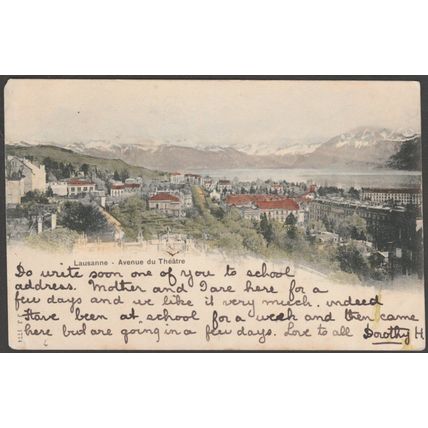 Lausanne - Avenue du Théâtre
Do write soon one of you to school
address. Mother and I are here for a
few days and we like it very much. indeed
Have been at school for a week and then came
here but are going in a few days. Love to all Dorothy H